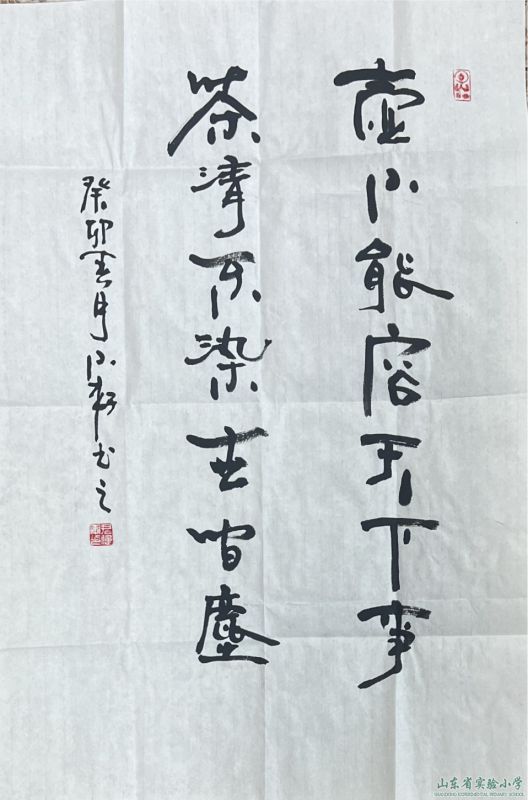 壶小能容天下事
茶清不染世间尘
癸卯春月小村书之
山东省实验小学
SHANDONG EXPERIMENTAL PRIMARY SCHOOL